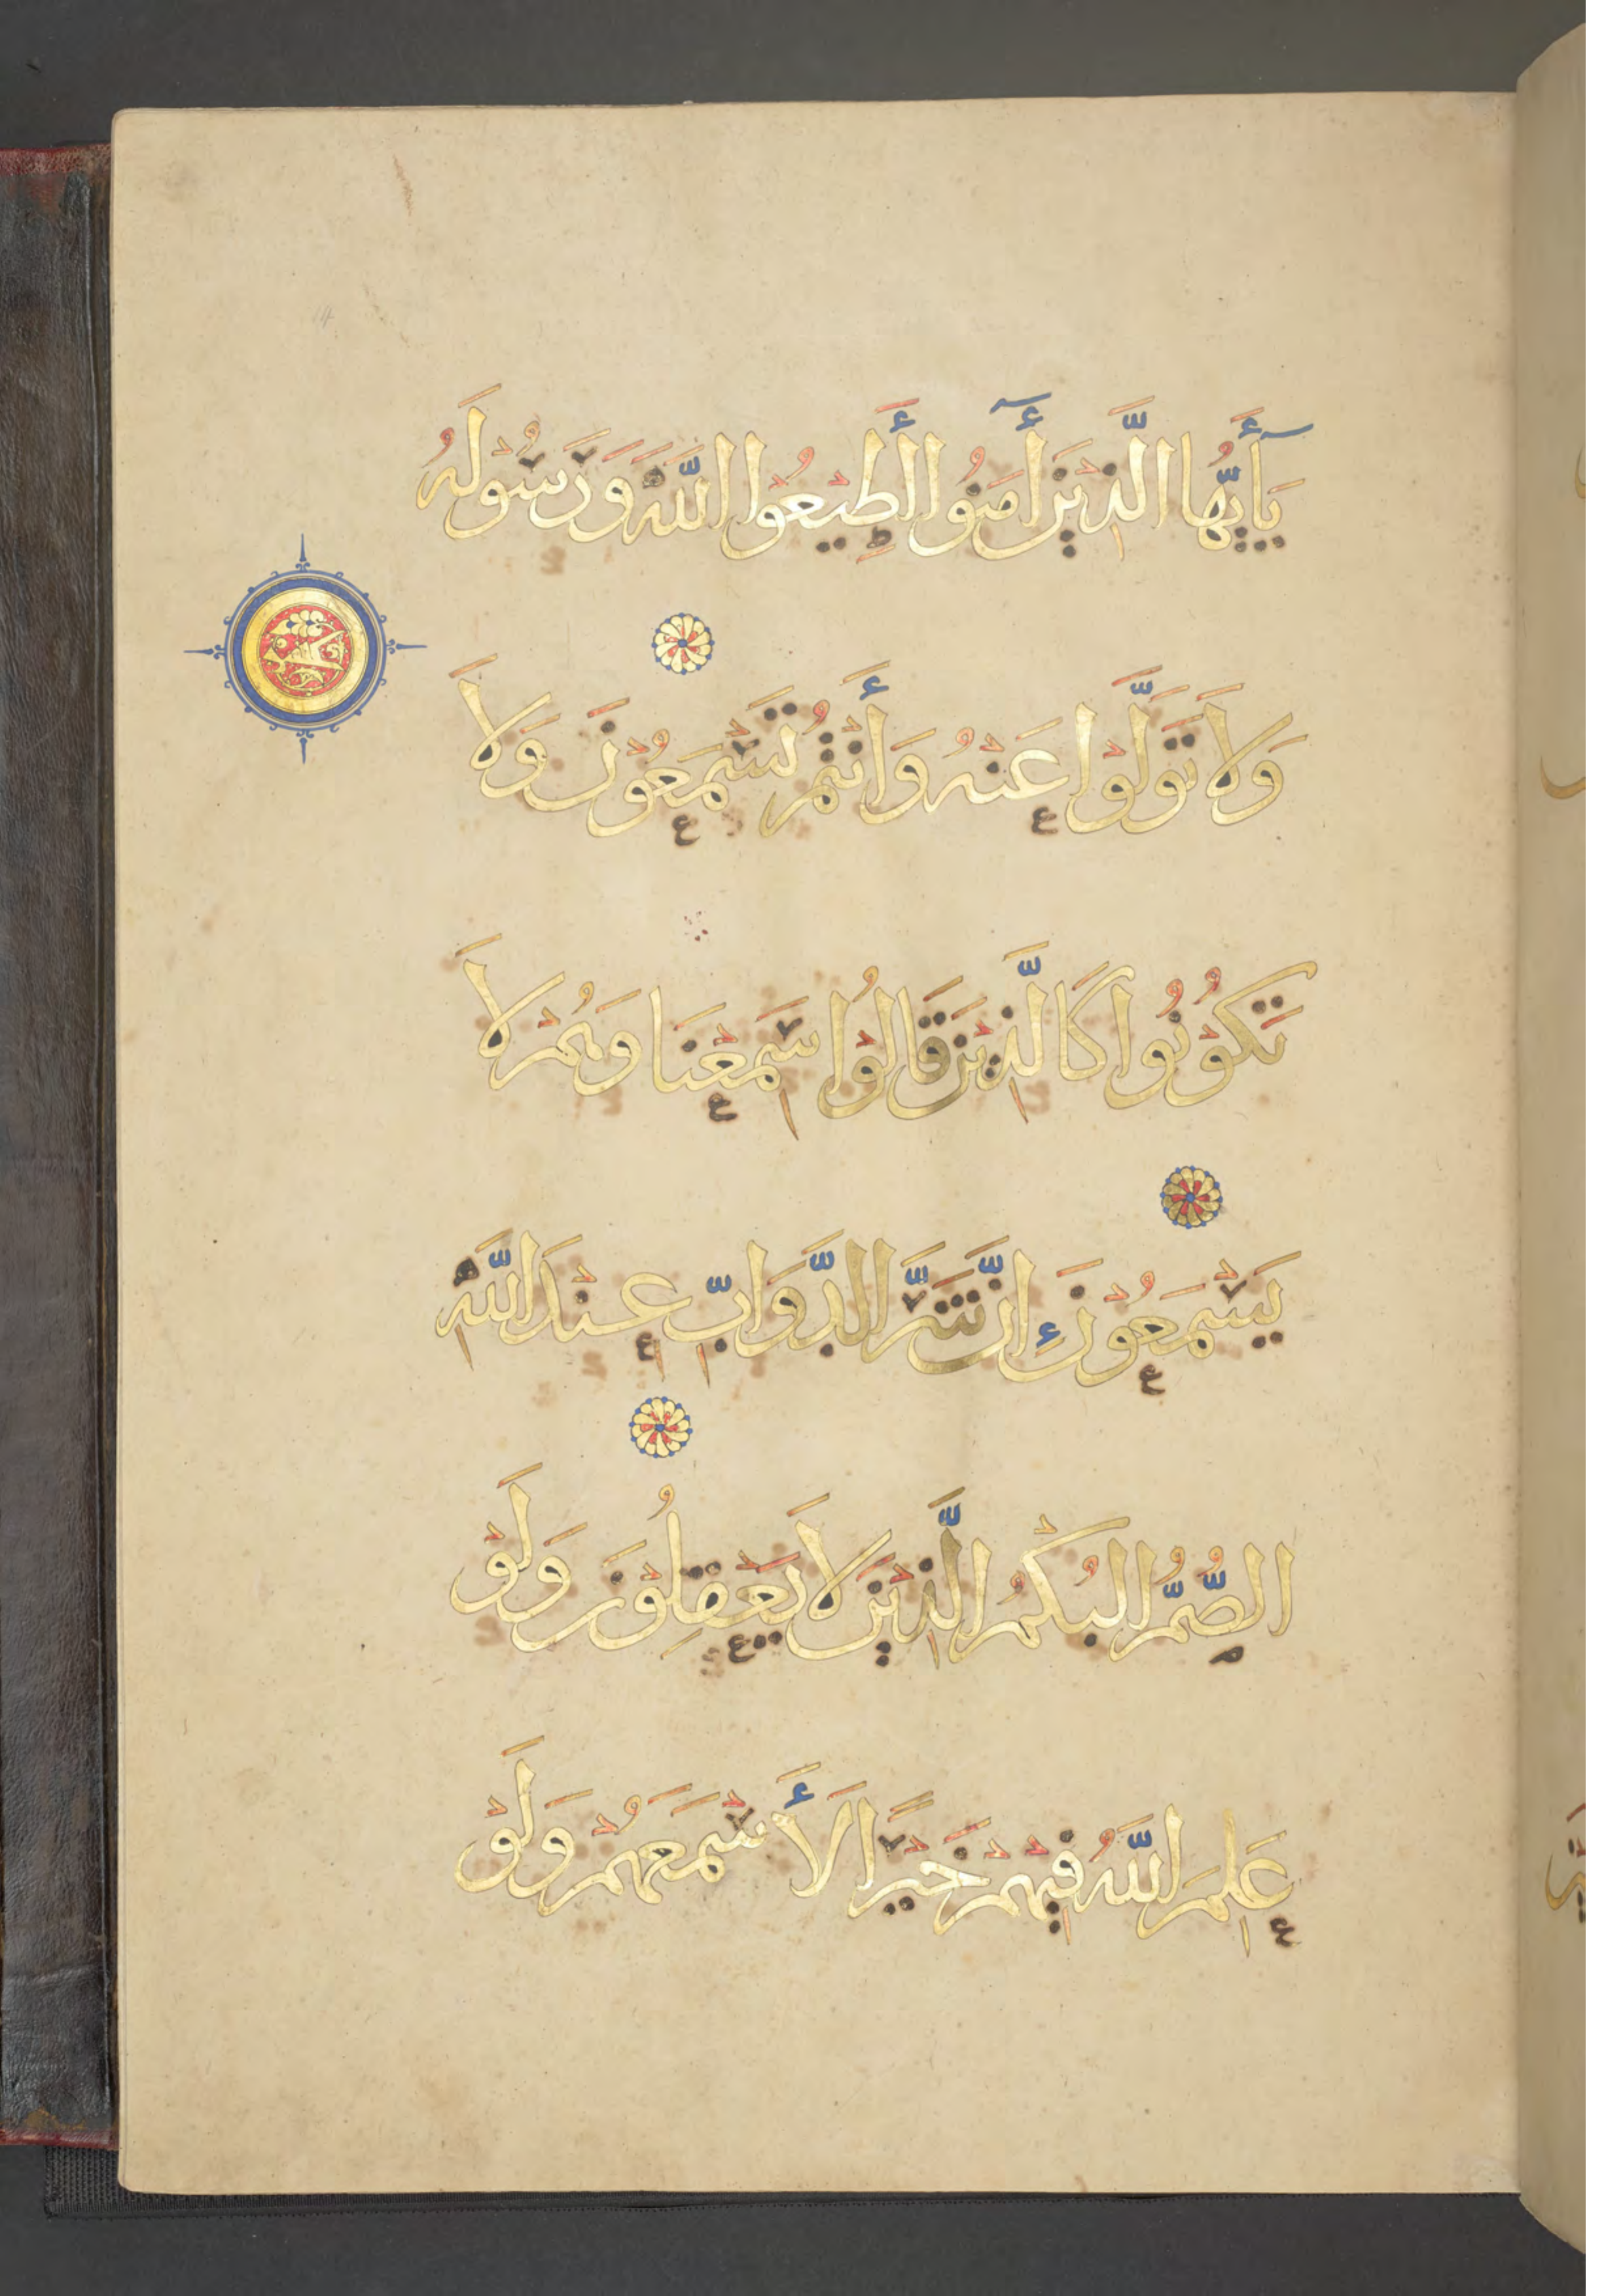 يَأَيُّهَا الَّذِيْنَ أَمَنُوا أَطِيْعُوا اللَّهَ وَرَسُوْلَهُ
وَلَا تَوَلَّوْا عَنْهُ وَأَنْتُمْ تَسْمَعُوْنَ وَلَا
تَكُوْنُوا كَالَّذِيْنَ قَالُوْا سَمِعْنَا وَهُمْ لَا
يَسْمَعُوْنَ إِنَّ شَرَّ الدَّوَابِّ عِنْدَ اللَّهِ
الصُّمُّ الْبُكْمُ الَّذِيْنَ لَا يَعْقِلُوْنَ وَلَوْ
عَلِمَ اللَّهُ فِيْهِمْ خَيْرًا لَأَسْمَعَهُمْ وَلَوْ